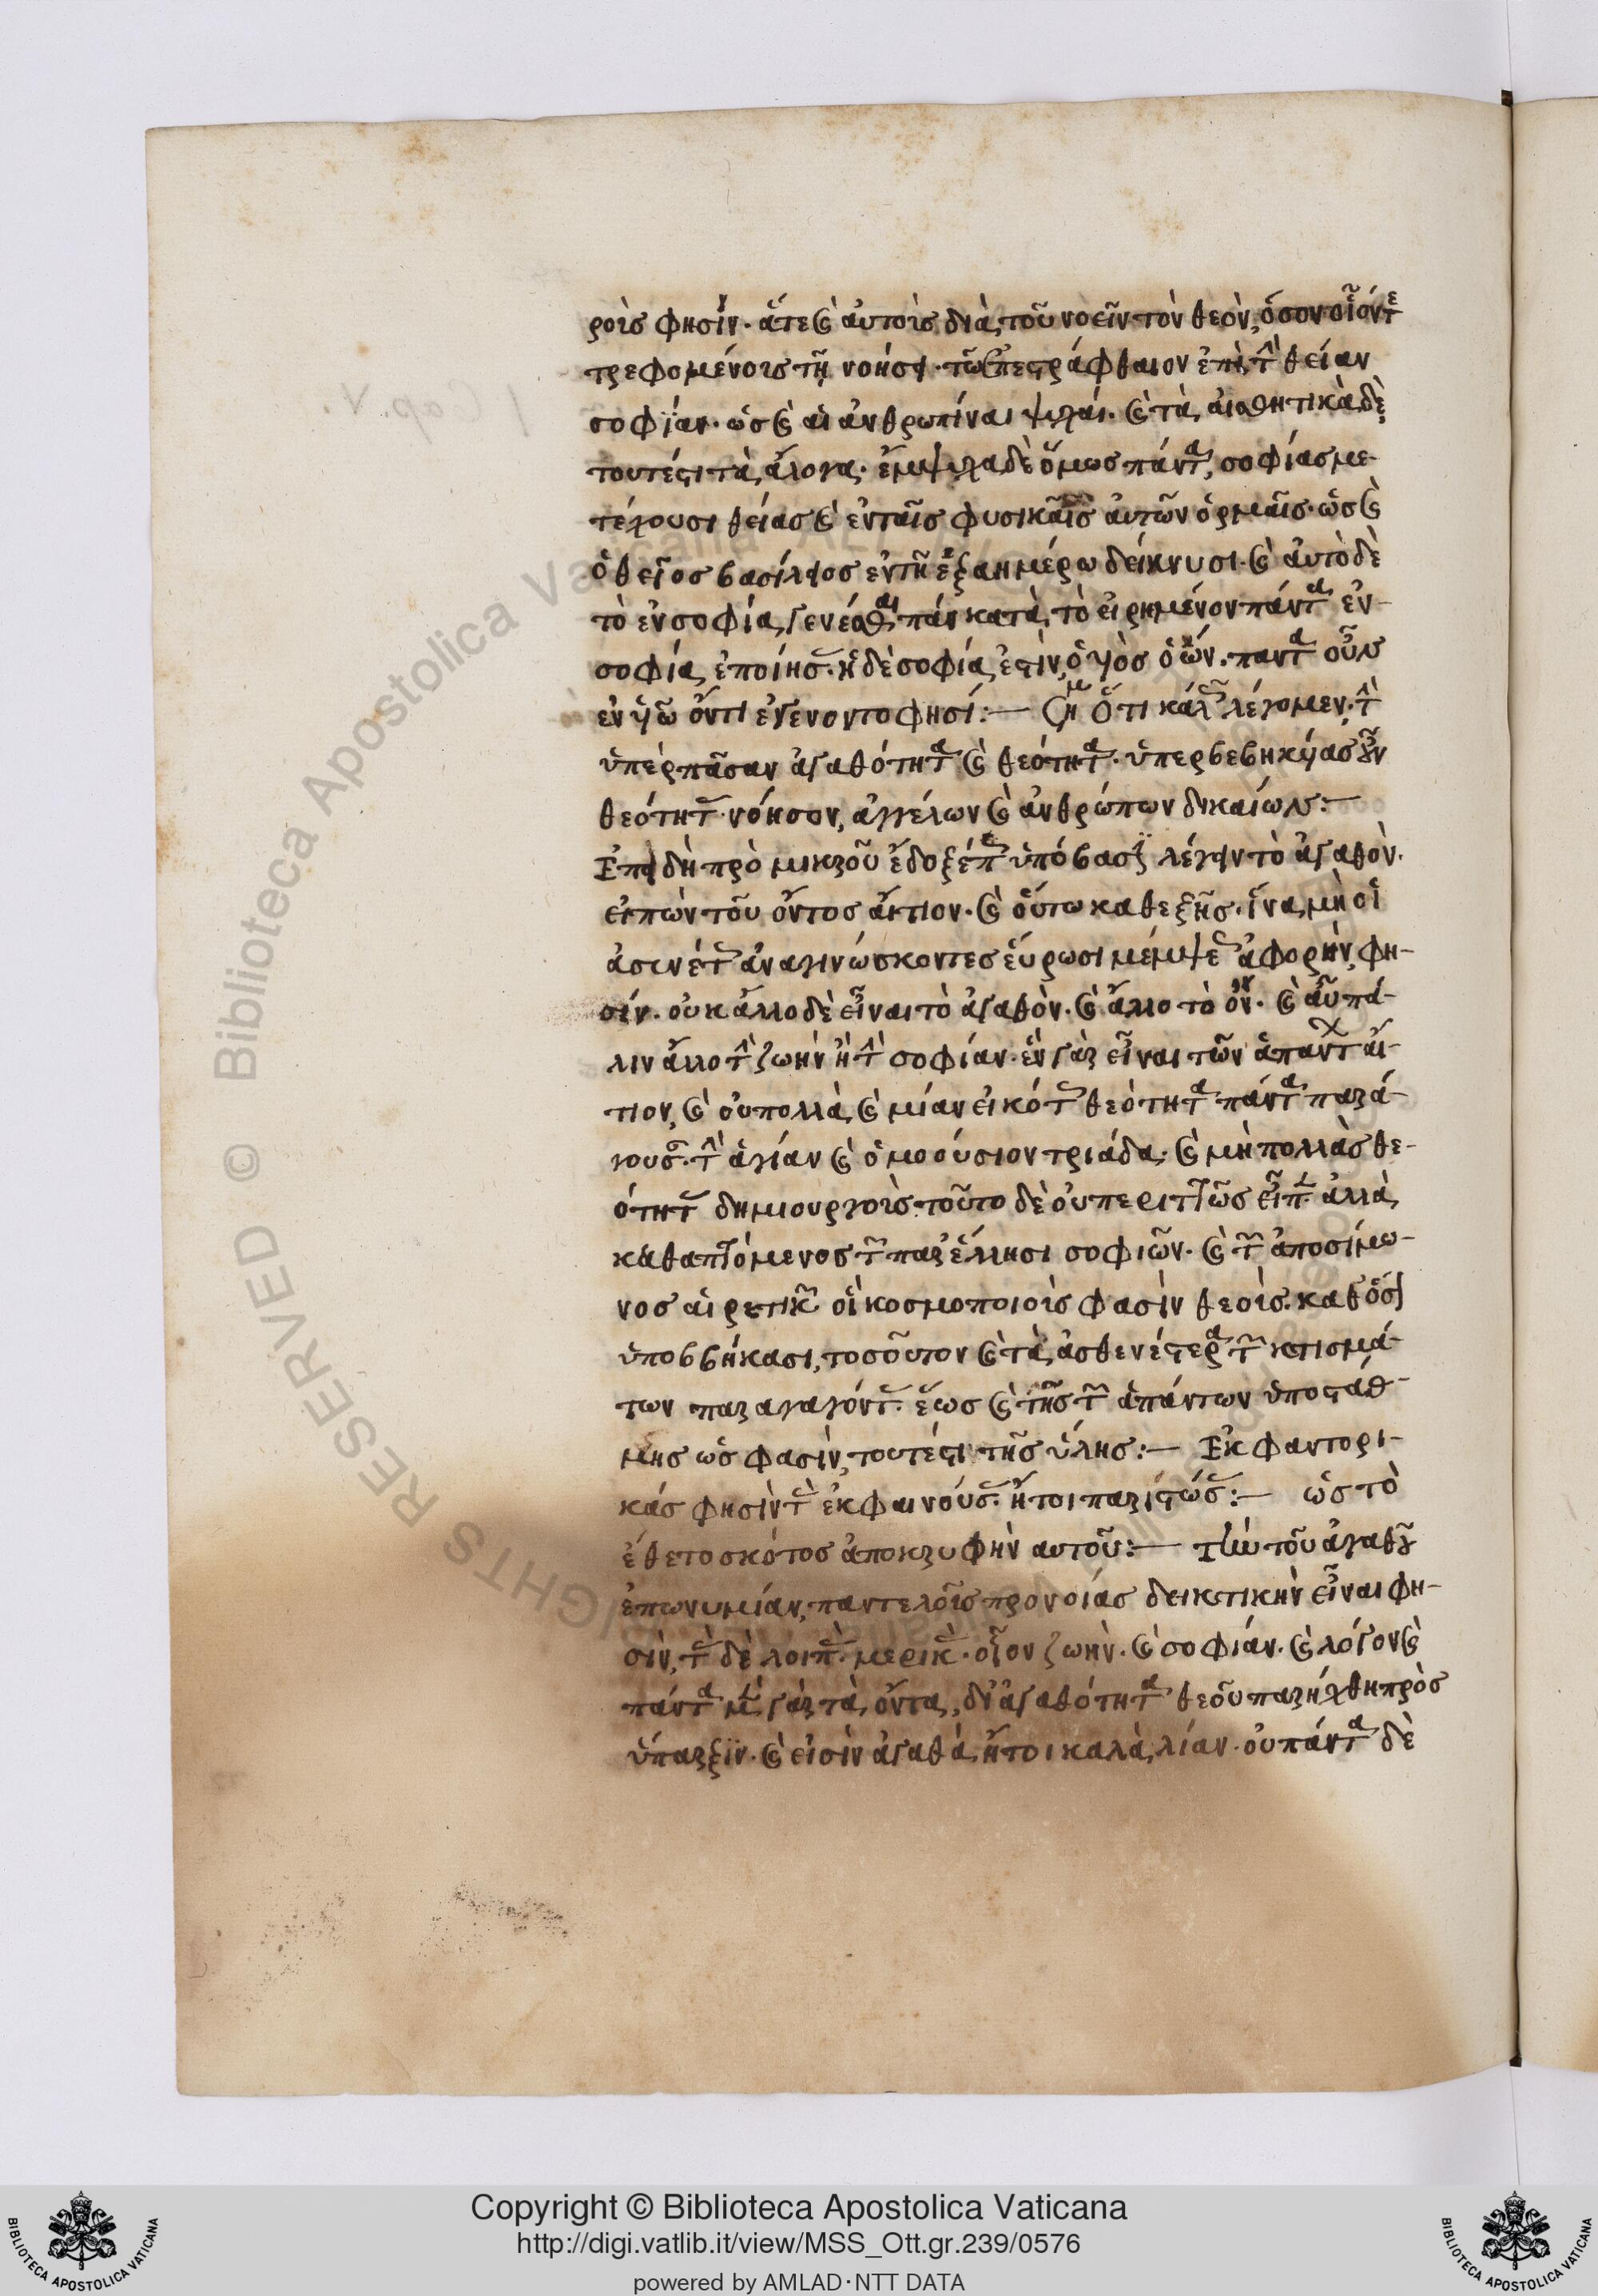 ροις φησίν· ἅτε καὶ αὐτοῖς διὰ τοῦ νοεῖν τὸν θεὸν, ὅσον οἷόντε
τρεφομένοις τῇ νοήσει· τῶ ἐπεστράφθαι ἐπὶ τ θείαν
σοφίαν· ὡς καὶ αἱ ἀνθρωπίναι ψυχαί· καὶ τὰ αἰσθητικὰ δὲ
τουτέστι τὰ ἄλογα· ἔμψυχα δὲ ὅμως πάντα, σοφίας με-
τέχουσι θείας καὶ ἐν ταῖς φυσικαῖς αὐτῶν ὁρμαῖς· ὡς καὶ
ὁ θεῖος βασίλειος ἐν τῆ ἑξαημέρω δείκνυσι· καὶ αὐτὸ δὲ
τὸ ἐν σοφία γενέσθαι πάν κατὰ τὸ εἰρημένον πάντα ἐν
σοφία ἐποίησ· ἡ δὲ σοφία ἐστὶν, ὁ υἱὸς ὁ ὤν· παντα οὖν
ἐν υἱῶ ὄντι ἐγένοντο φησί:— ση Ὅτι λέγομεν· τ
ὑπὲρ πᾶσαν ἀγαθότητα καὶ θεότητα· ὑπερβεβηκυίας οὖν
θεότητ νόησον, ἀγγέλων καὶ ἀνθρώπων δικαίων:—
Ἐπειδὴ πρὸ μικροῦ ἔδοξέ ὑπόβασι λέγειν τὸ ἀγαθὸν·
εἰπὼν τοῦ ὄντος αἴτιον· καὶ οὕτω καθεξῆς· ἵνα μὴ οἱ
ἀσινέτ ἀναγινώσκοντες εὕρωσι μέμψε ἀφορμήν, φη-
σίν· οὐκ ἄλλο δὲ εἶναι τὸ ἀγαθὸν· καὶ ἄλλο τὸ ὄν· καὶ αὖ πά-
λιν ἄλλο τ ζωὴν ἢ τ σοφίαν· ἓν γὰρ εἶναι τῶν ἁπαντ αἴ-
τιον, καὶ οὐ πολλὰ, καὶ μίαν εἰκότ θεότητα πάντα παρά-
γους· τ ἁγίαν καὶ ὁμοούσιον τριάδα· καὶ μὴ πολλὰς θε-
ότητ δημιουργοὶς· τοῦτο δὲ οὐ περιττῶς εἶπ ἀλλὰ
καθαπτόμενος τ παρ ἕλλησι σοφιῶν· καὶ τ ἀπὸ σίμω-
νος αἱρετικ οἳ κοσμοποιοὶς φασὶν θεοὶς· καθόσ
ὑποββήκασι, τοσοῦτον καὶ τὰ ἀσθενέστερα τ κτισμά-
των παραγαγόντ· ἕως καὶ τῆς τ ἁπάντων ὑποσταθ-
μης ὡς φασὶν, τουτέστι τῆς ὕλης:— Ἐκφαντορι-
κάς φησὶν τ ἐκφαινούσ· ἤτοι παριστώσ:— ὡς τὸ
ἔθετο σκότος ἀποκρυφὴν αυτοῦ:— Τὴν τοῦ ἀγαθοῦ
ἐπωνυμίαν, παντελοῖς προνοίας δεικτικὴν εἶναι φη-
σὶν, τ δὲ λοιπ· μερικ· οἷον ζωὴν· καὶ σοφίαν· καὶ λόγον καὶ
πάντα μ γὰρ τὰ ὄντα, δι ἀγαθότητα θεοῦ παρήχθη πρὸς
ὕπαρξιν· καὶ εἰσὶν ἀγαθὰ, ἤτοι καλὰ λίαν· οὐ πάντα δὲ
Copyright © Biblioteca Apostolica Vaticana
http://digi.vatlib.it/view/MSS_Ott.gr.239/0576
powered by AMLAD·NTT DATA
BIBLIOTECA APOSTOLICA VATICANA
BIBLIOTECA APOSTOLICA VATICANA